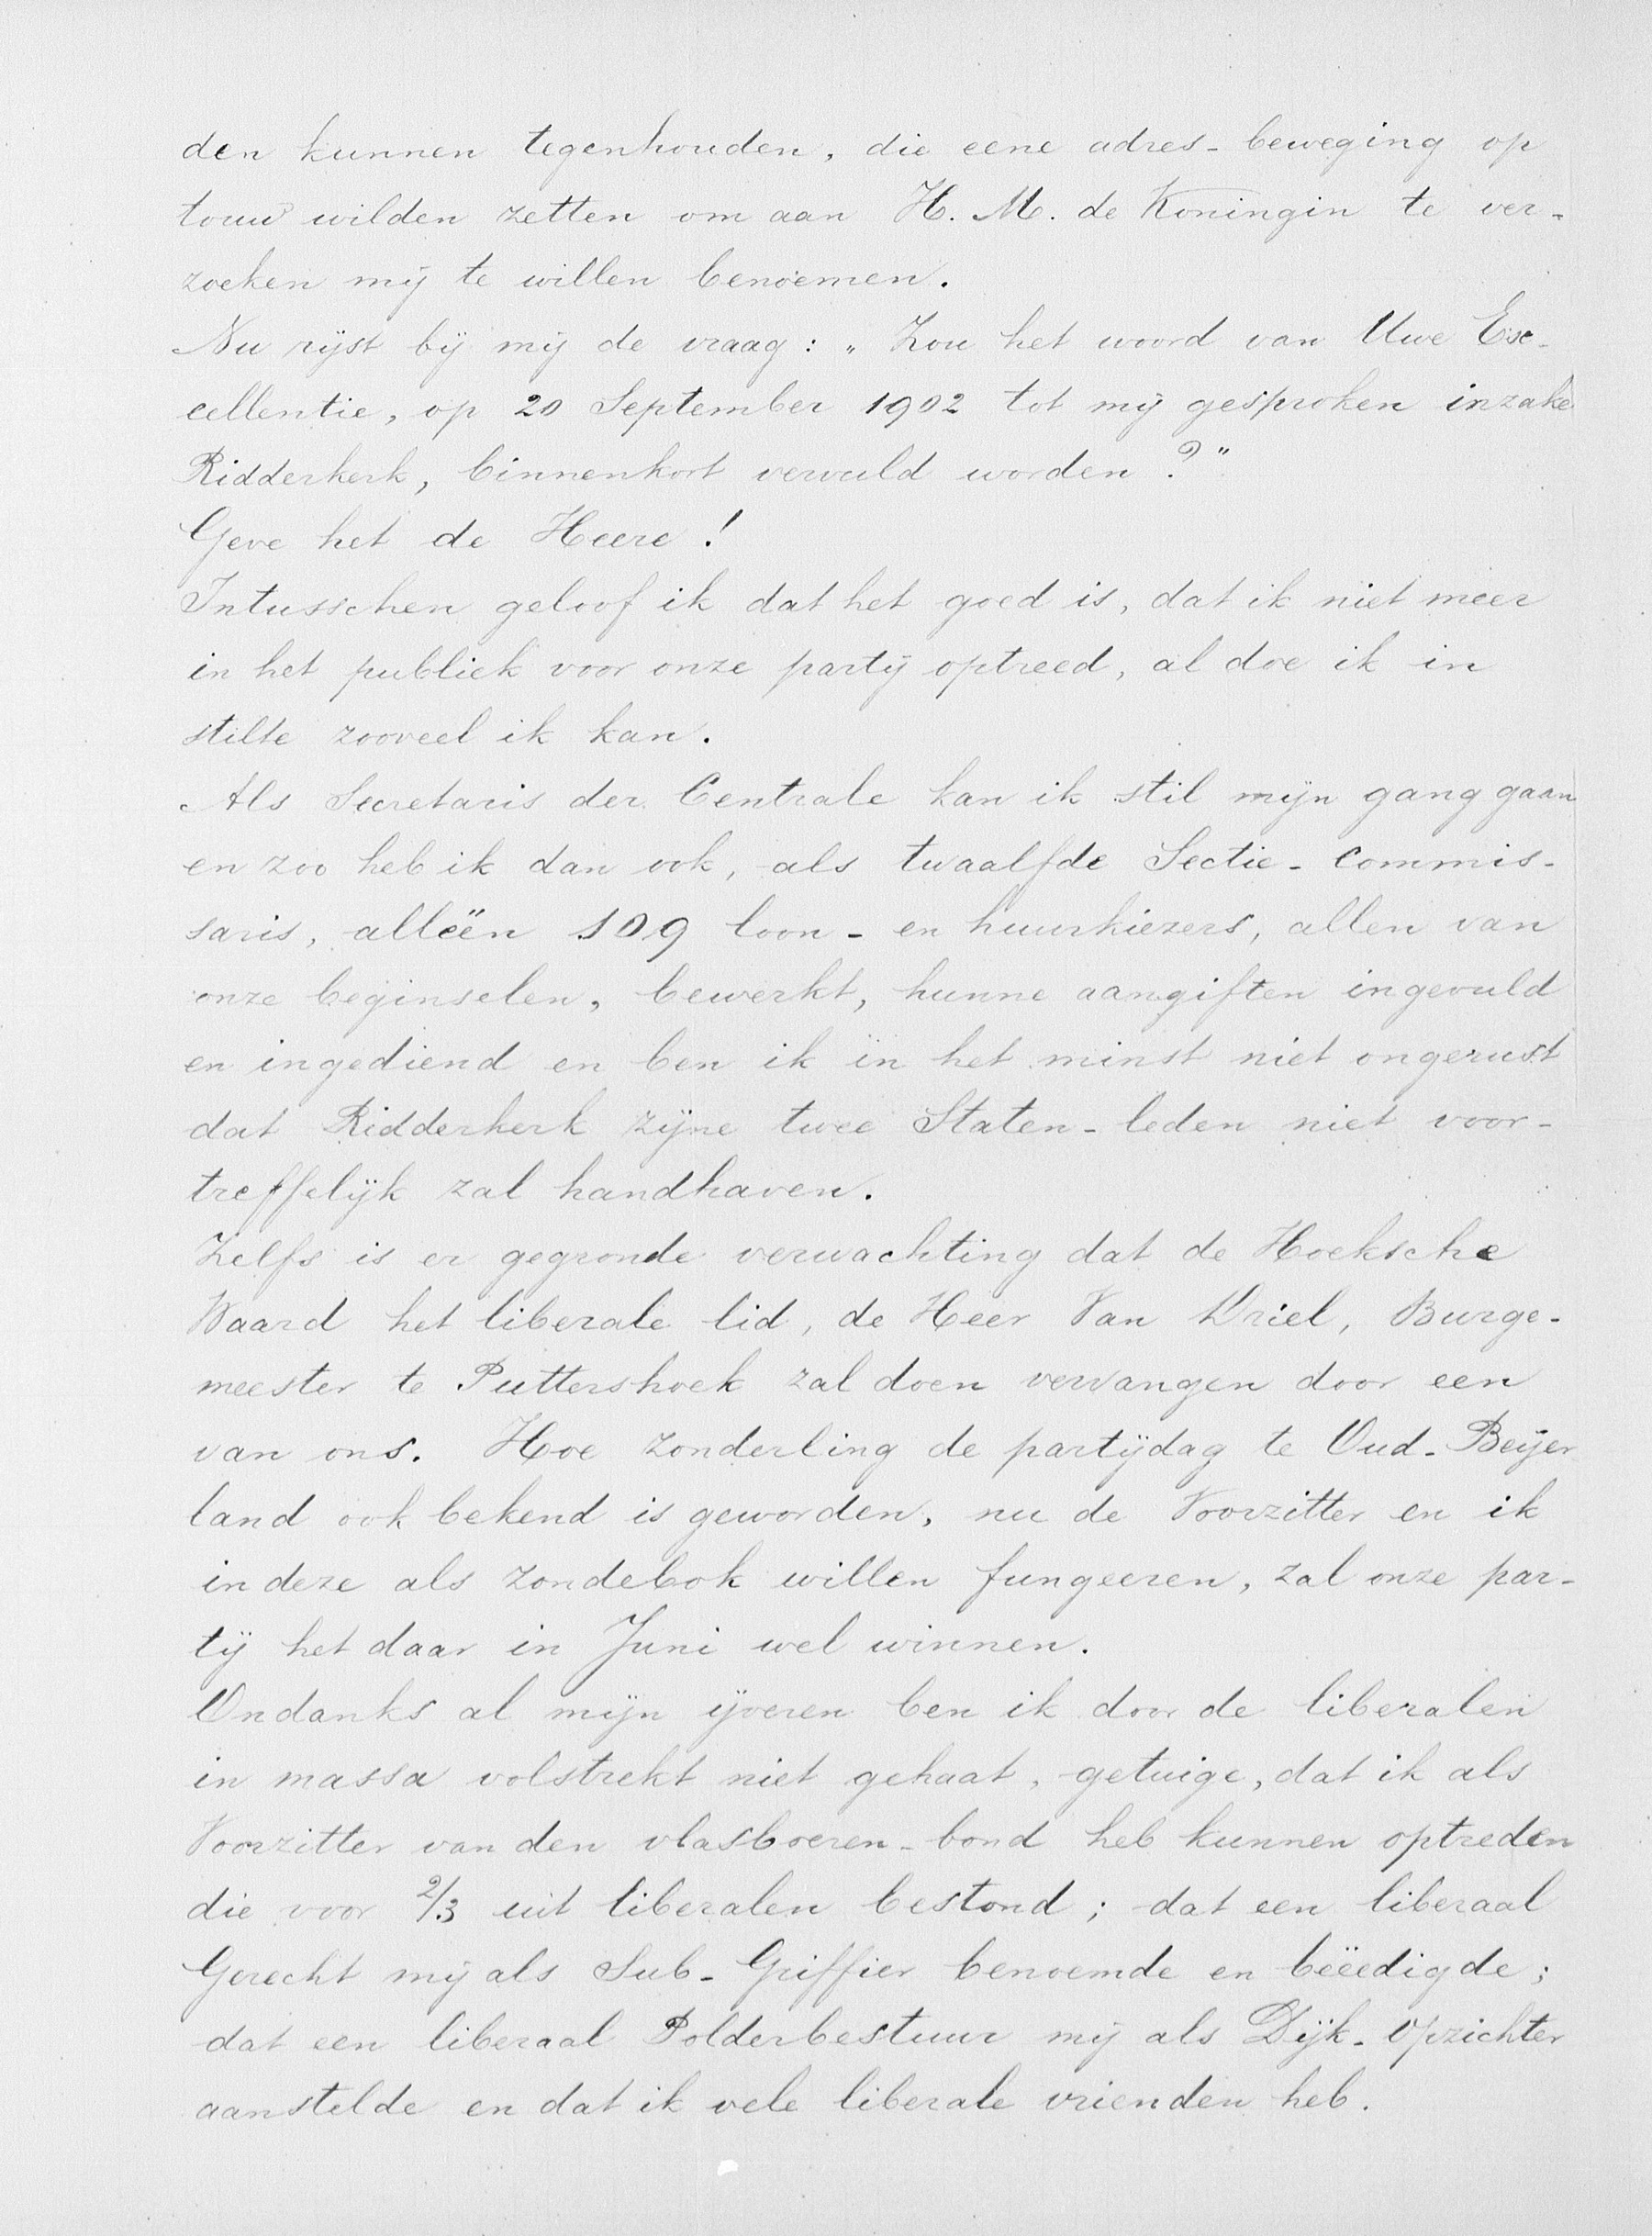 den kunnen tegenhouden, die eene adres-beweging op
touw wilden zetten om aan H. M. de Koningin te ver-
zoeken mij te willen benoemen.
Nu rijst bij mij de vraag: „Zou het woord van Uwe Ex-
cellentie, op 20 September 1902 tot mij gesproken inzake
Ridderkerk, binnenkort vervuld worden?"
Geve het de Heere!
Intusschen geloof ik dat het goed is, dat ik niet meer
in het publiek voor onze partij optreed, al doe ik in
stilte zooveel ik kan.
Als Secretaris der Centrale kan ik stil mijn gang gaan
en zoo heb ik dan ook, als twaalfde Sectie-Commis-
saris, alleën 109 loon- en huurkiezers, allen van
onze beginselen, bewerkt, hunne aangiften ingevuld
en ingediend en ben ik in het minst niet ongerust
dat Ridderkerk zijne twee Staten-leden niet voor-
treffelijk zal handhaven.
Zelfs is er gegronde verwachting dat de Hoeksche
Waard het liberale lid, de Heer Van Driel, Burge-
meester te Puttershoek zal doen vervangen door een
van ons. Hoe zonderling de partijdag te Oud-Beijer
land ook bekend is geworden, nu de Voorzitter en ik
in deze als zondebok willen fungeeren, zal onze par-
tij het daar in Juni wel winnen.
Ondanks al mijn ijveren ben ik door de liberalen
in massa volstrekt niet gehaat, getuige, dat ik als
Voorzitter van den vlasboeren-bond heb kunnen optreden
die voor 2/3 uit liberalen bestond; dat een liberaal
Gerecht mij als Sub-Griffier benoemde en beëedigde;
dat een liberaal Polderbestuur mij als Dijk-Opzichter
aanstelde en dat ik vele liberale vrienden heb.